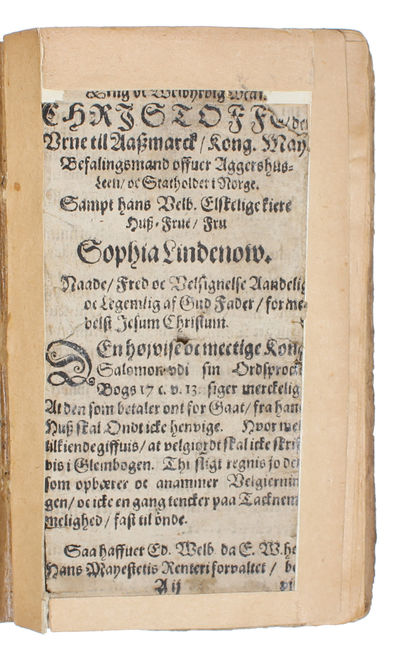 Ærlig oc Velbyrdig Mand
CHRISTOFF
Vrne til Aaßmarck / Kong. May
Befalingsmand offuer Aggershus-
Leen / oc Statholder i Norge.
Sampt hans Velb. Elskelige kiere
Huß-Frue / Fru
Sophia Lindenow.
Naade / Fred oc Velsignelse Aandelig
oc Legemlig af Gud Fader / forme-
delst Jesum Christum.
DEn højvise oc mectige Kong
Salomon vdi sin Ordsprock
Bogs 17 c. v. 13. siger merckelig
At den som betaler ont for Gaat / fra han
Huß skal Ondt icke henvige. Hvor
tilkiendegiffuis / at velgiordt skal icke skrif
vis i Glembogen. Thi sligt regnis jo
som opbærer oc anammer Velgiernin
gen / oc icke en gang tencker paa Tacknem
melighed / fast til önde.
Saa haffuer Ed. Welb. da E. W. he
Hans Mayestetis Renteri forvaltet / be
A ij